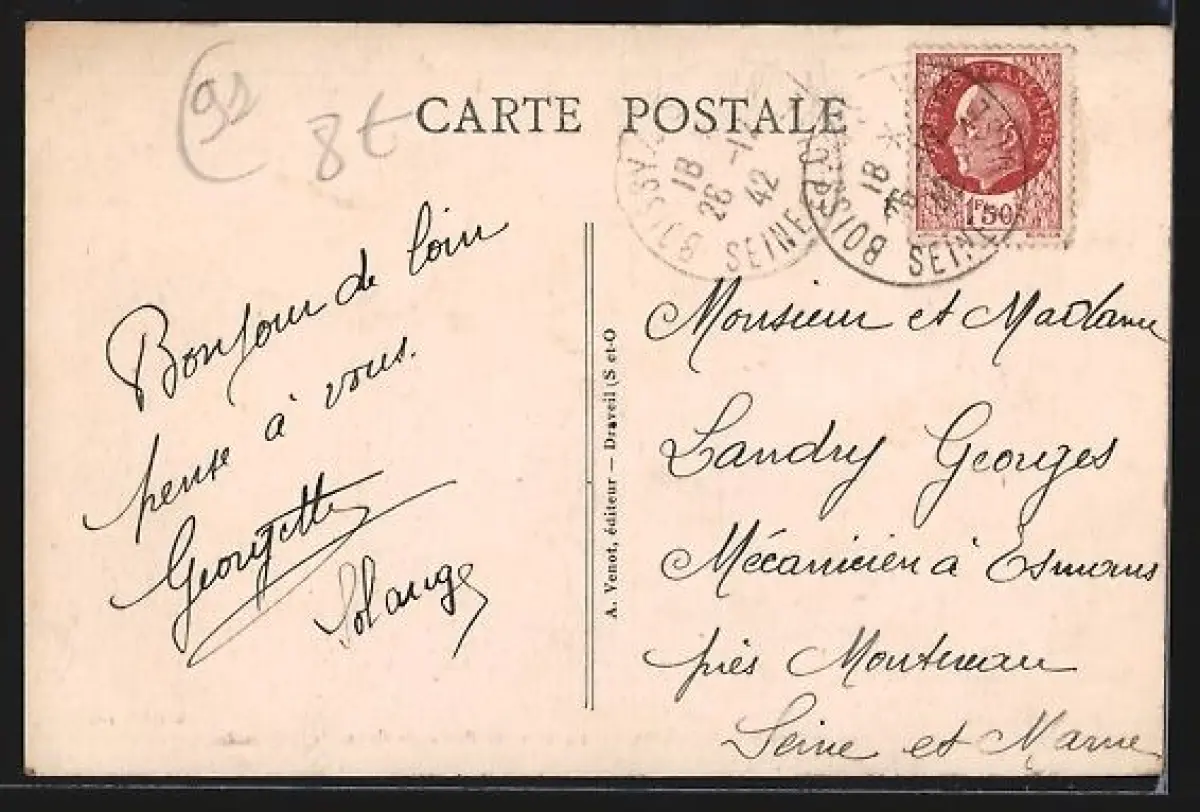 91
8t
CARTE POSTALE
POSTES FRANÇAISES
1F50
18
26 -11
42
BOISSY
SEINE
18
26
BOISSY
SEINE
Bonjour de loin
pense à vous.
Georgette
Solange
A. Venot, éditeur — Draveil (S et-O
Monsieur et Madame
Landry Georges
Mécanicien à Esmans
près Montereau
Seine et Marne